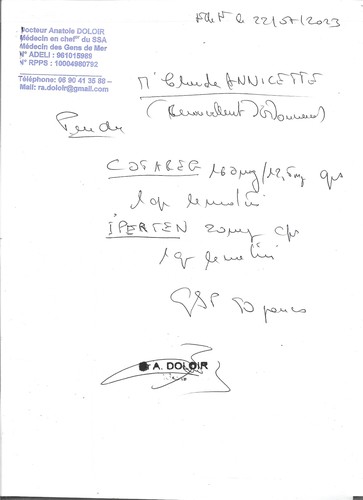 Docteur Anatole DOLOIR
Médecin en chef du SSA
Médecin des Gens de Mer
N° ADELI : 961015969
N° RPPS : 10004980792
Téléphone: 06 90 41 35 88 –
Mail: ra.doloir@gmail.com
le 22/07/2023
Mr Claude ANNICETTE
(Renouvellement d'Ordonnance)
Prendre
COTAREG 160mg/12,5mg cps
1 cp le matin
IPERTEN 20mg cps
1 cp le matin
QSP 90 jours
A. DOLOIR